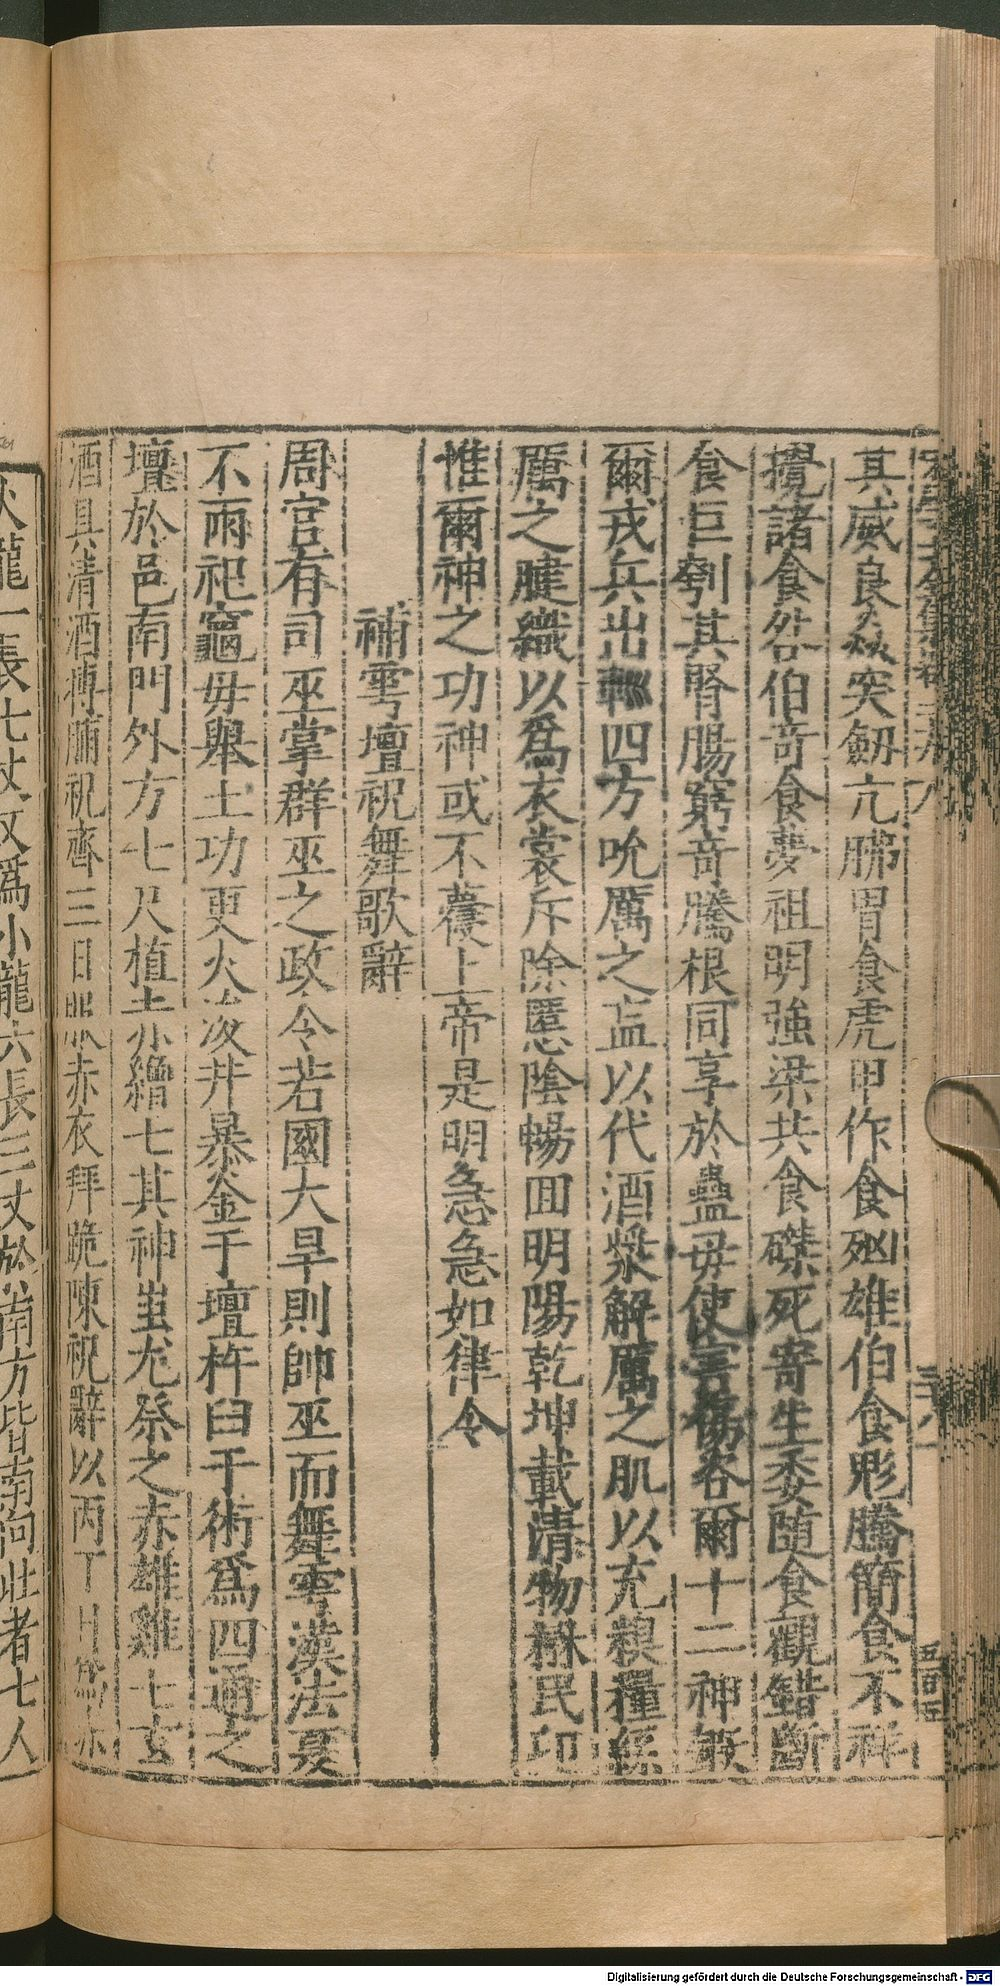 其威良猋突劒亢胇胃食虎甲作食𣧑雄伯食鬽騰簡食不祥
攬諸食咎伯竒食夢祖明強梁共食磔死寄生委随食觀錯斷
食巨刳其腎腸窮竒騰根同享於蠱毋使害傷咨爾十二神鍛
爾戎兵出四方吮厲之衁以代酒漿解厲之肌以充糗糧縆
厲之腱織以爲衣裳斥除慝陰暢囬明陽乾坤載清物楙民
惟爾神之功神或不蘉上帝是明急急如律令
補雩壇祝舞歌辭
周官有司巫掌群巫之政令若國大旱則帥巫而舞雩漢法夏
不雨祀竈毋舉土功更火浚井暴釜于壇杵臼于術爲四通之
壇於邑南門外方七尺植赤繒七其神蚩尤祭之赤雄雞七玄
酒具清酒搏脯祝齋三日服赤衣拜跪陳祝辭以丙丁日爲赤
火龍一長七丈又爲小龍六長三丈於南方皆南向壯者七人